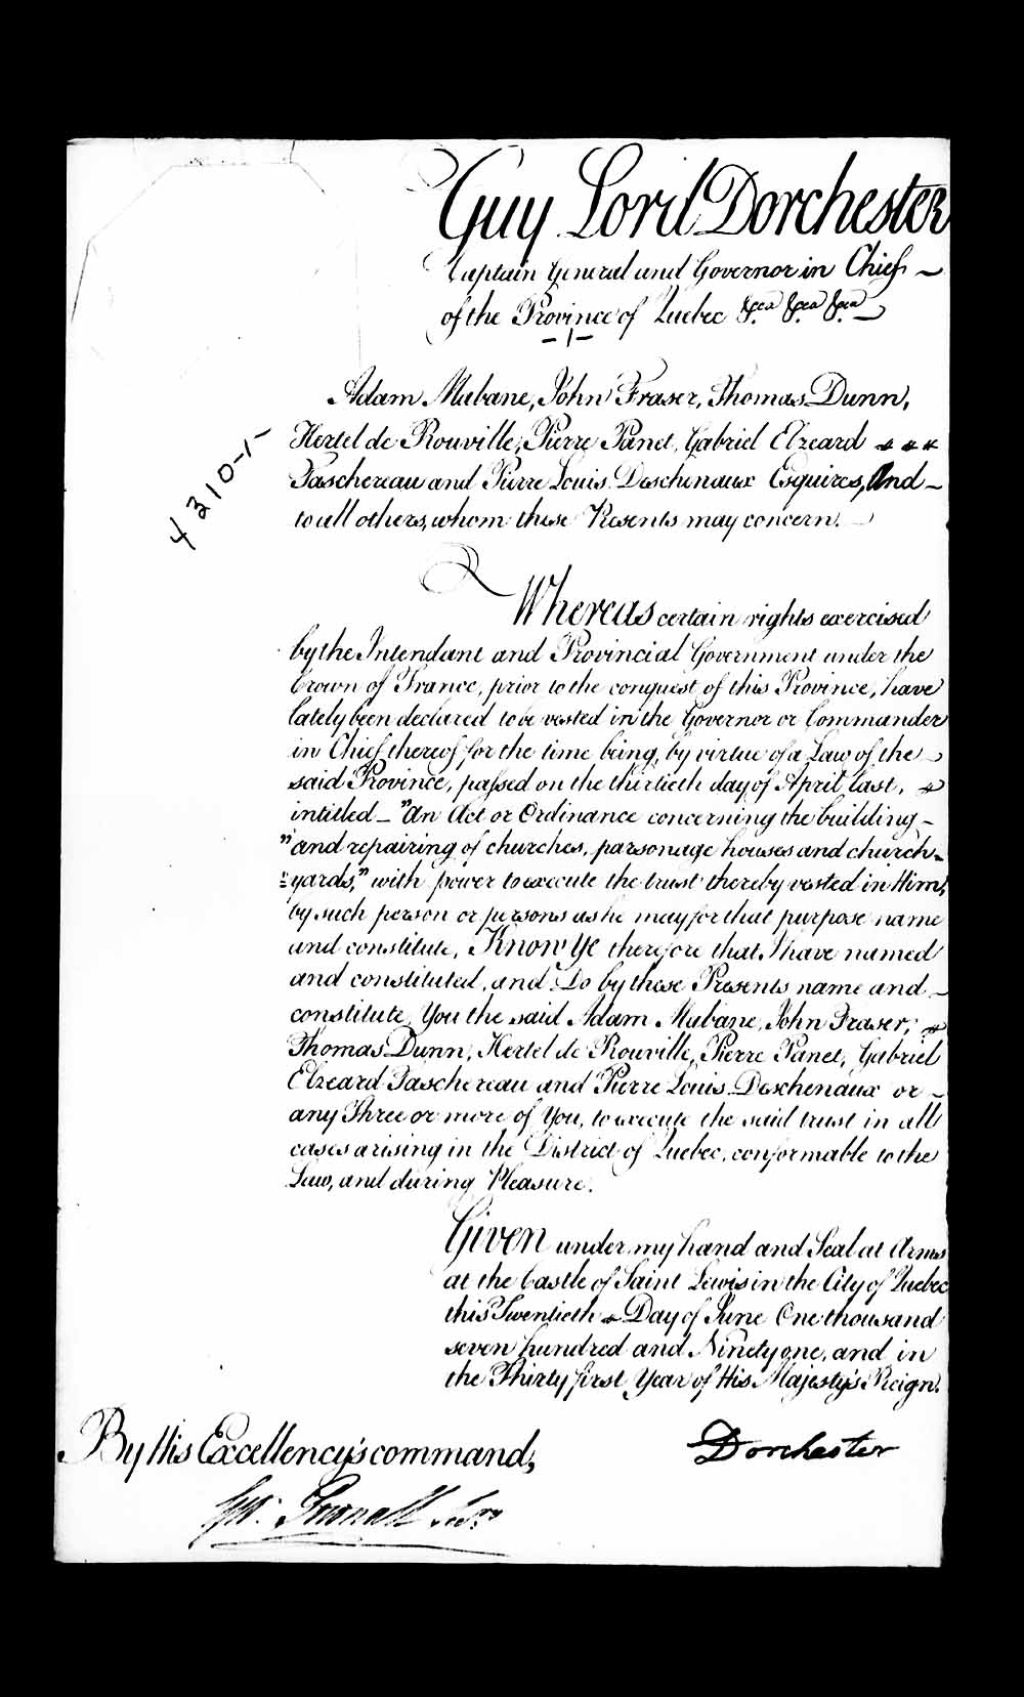 Guy Lord Dorchester
Captain General and Governor in Chief
of the Province of Quebec &ca &ca &ca
-1-
Adam Mabane, John Fraser, Thomas Dunn,
Hertel de Rouville, Pierre Panet, Gabriel Elzeard
Taschereau and Pierre Louis Deschenaux Esquires, And
to all others, whom these Presents may concern.
4310-1-
Whereas certain rights exercised
by the Intendant and Provincial Government under the
Crown of France, prior to the conquest of this Province, have
lately been declared to be vested in the Governor or Commander
in Chief thereof for the time being, by virtue of a Law of the
said Province, passed on the thirtieth day of April last,
intitled - "An Act or Ordinance concerning the building -
"and repairing of churches, parsonage houses and church-
"yards," with power to execute the trust thereby vested in Him,
by such person or persons as he may for that purpose name
and constitute, Know Ye therefore that I have named
and constituted, and Do by these Presents name and
constitute You the said Adam Mabane, John Fraser,
Thomas Dunn, Hertel de Rouville, Pierre Panet, Gabriel
Elzeard Taschereau and Pierre Louis Deschenaux or
any Three or more of You, to execute the said trust in all
cases arising in the District of Quebec, conformable to the
Law, and during Pleasure.
Given under my hand and Seal at Arms
at the Castle of Saint Lewis in the City of Quebec
this Twentieth Day of June One thousand
seven hundred and Ninety one, and in
the Thirty first Year of His Majesty's Reign.
By His Excellency's command,
Dorchester
Geo: Pownall Secry